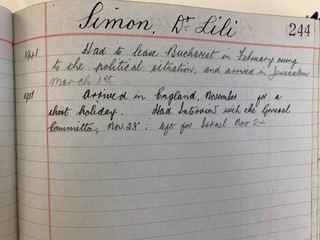 Simon, Dr Lili
244
1941 Had to leave Bucharest in February owing
to the political situation, and arrived in Jerusalem
March 1st
1951 Arrived in England, November for a
short holiday. Had Interview with the General
Committee, Nov. 23: left for Israel Nov 24